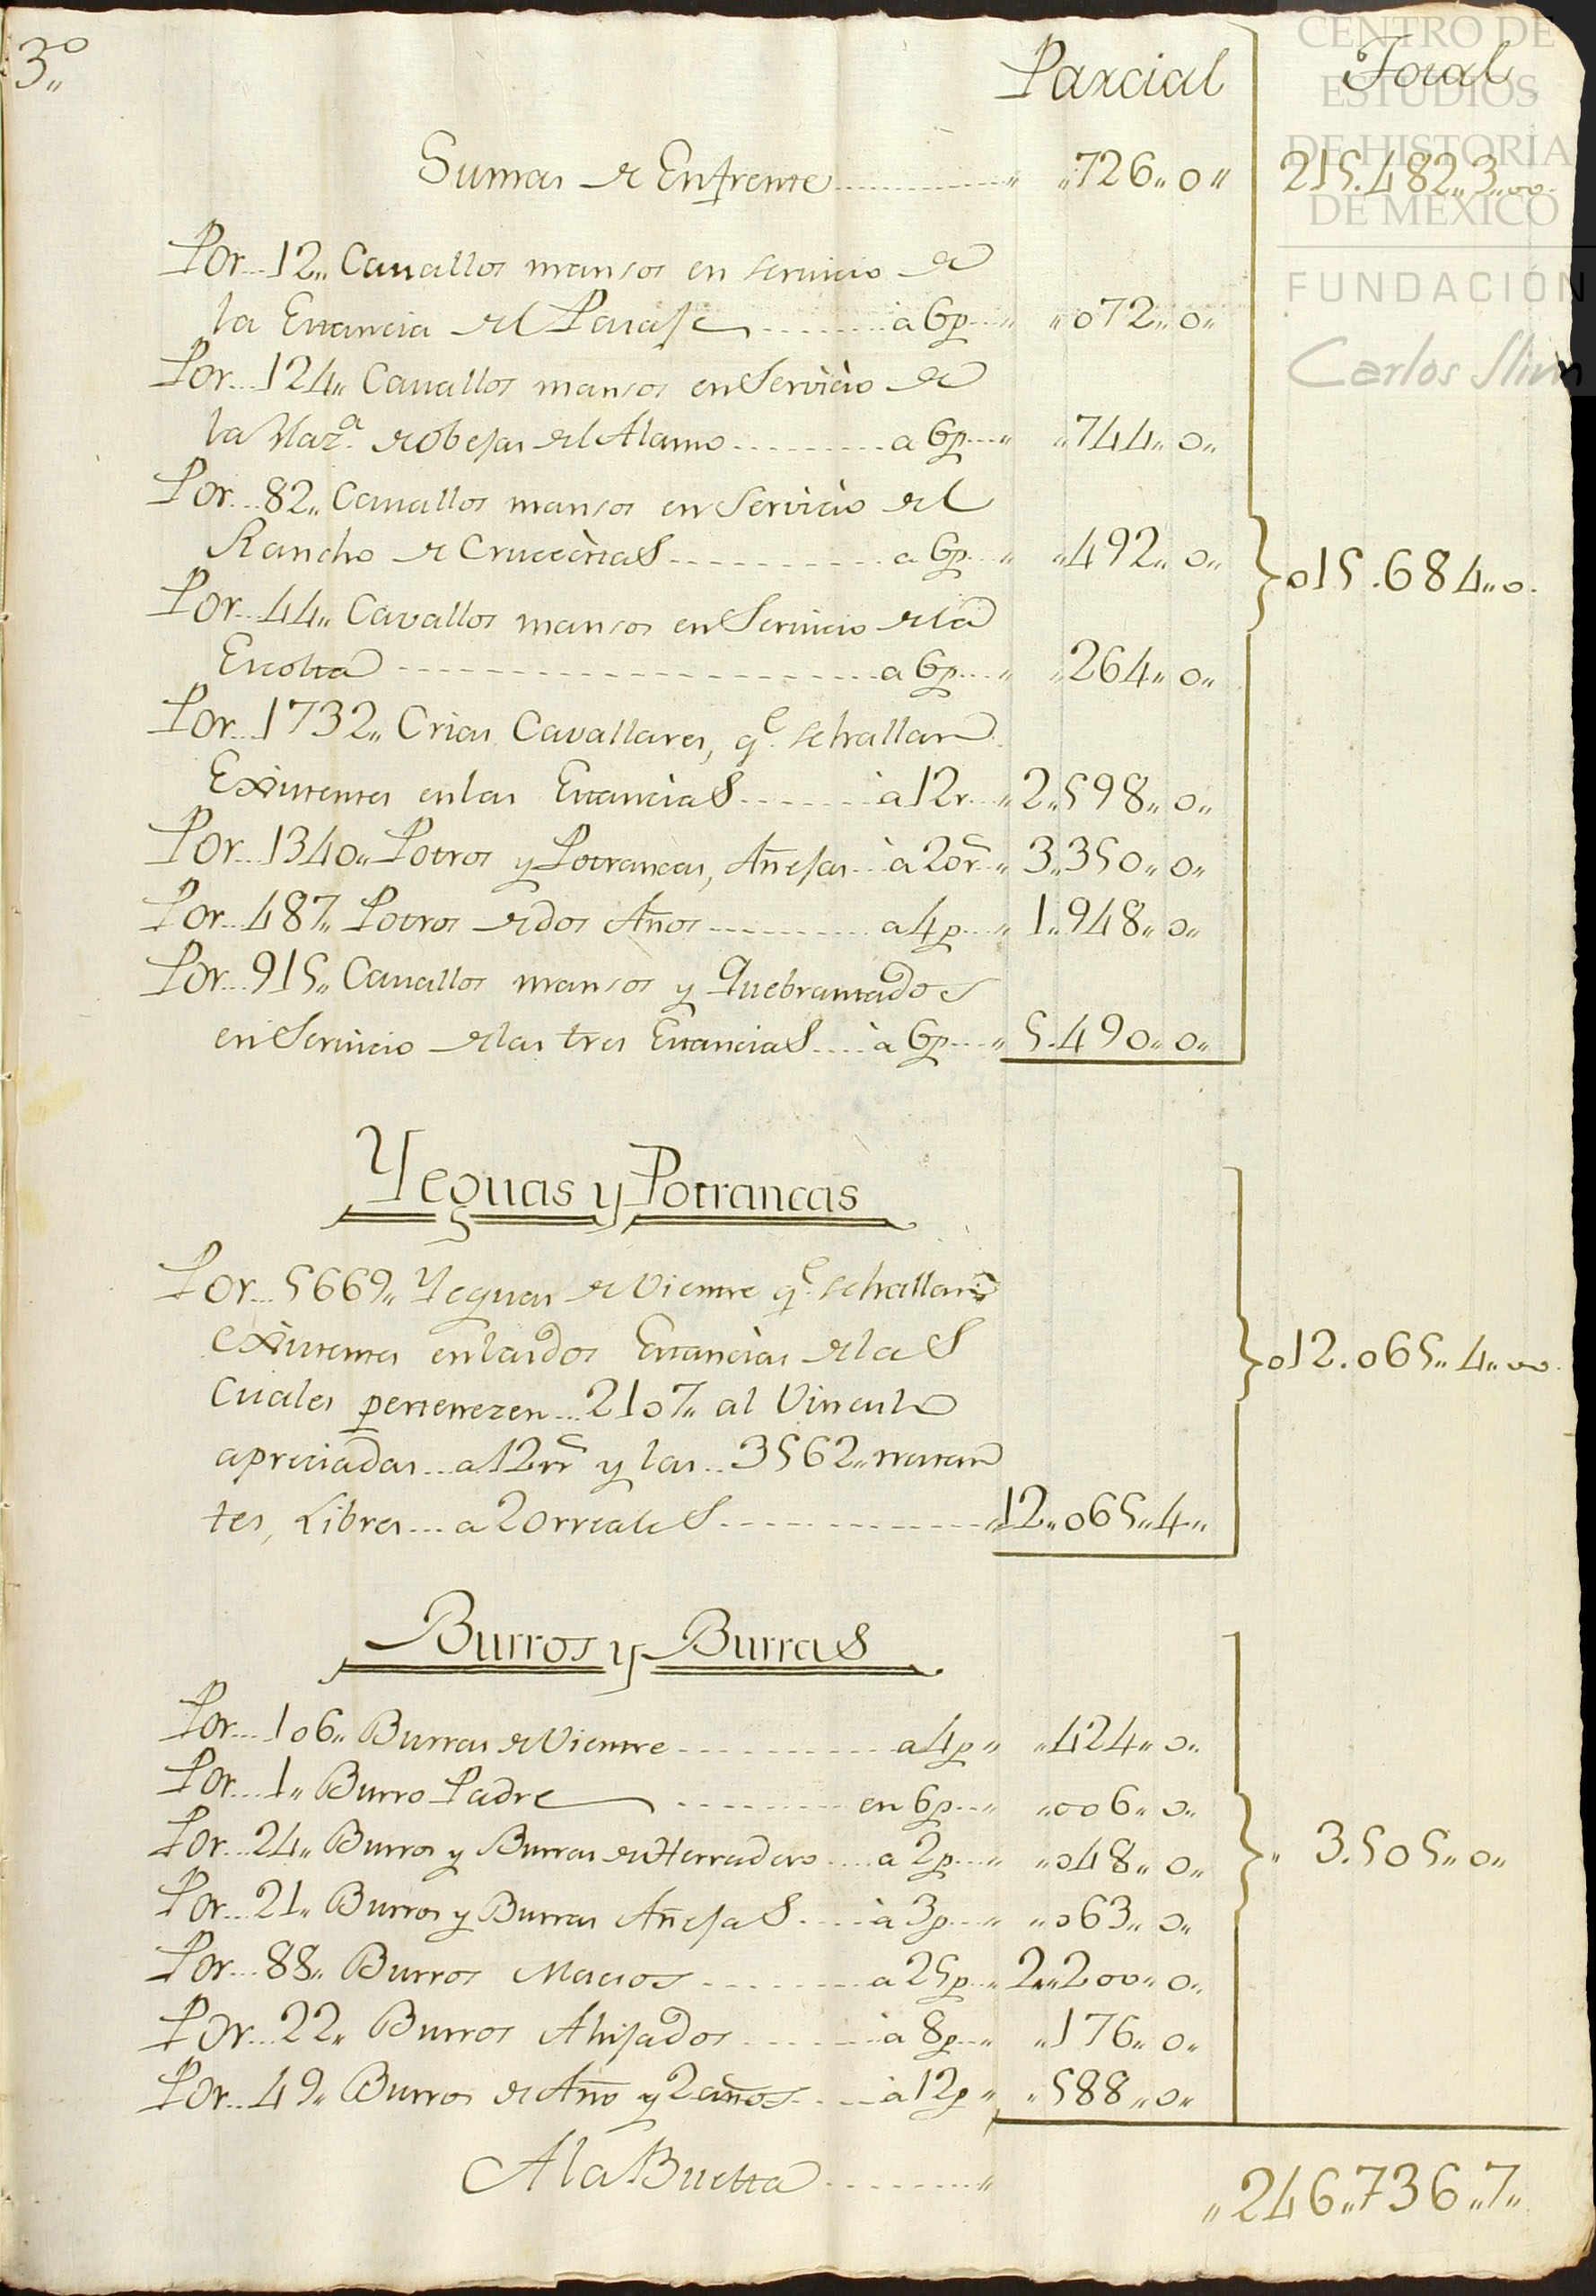 3.º
Parcial Total
Sumas de Enfrente " "726" 0" 215.482"3"00.
Por 12" Cavallos mansos en servicio de
la Estancia del Pasaje a 6p " "072" 0"
Por 124" Cavallos mansos en Servicio de
la Haz.ª de Obejas del Alamo a 6p " "744" 0"
Por 82" Cavallos mansos en Servicio del
Rancho de Crucecitas a 6p " "492" 0"
015.684"0.
Por 44" Cavallos mansos en Servicio de la
Escolta a 6p " "264" 0"
Por 1732" Crias Cavallares, q.e se hallan
Existentes en las Estancias à 12r "2"598" 0"
Por 1340" Potros y Potrancas, Añejas à 20r.s " 3"350" 0"
Por 487" Potros de dos Años a 4p " 1"948" 0"
Por 915" Cavallos mansos y Quebrantados
en Servicio de las tres Estancias à 6p " 5.490" 0"
Yeguas y Potrancas
Por 5669" Yeguas de Vientre q.e se hallan
existentes en las dos Estancias de las
012.065"4"00.
Cuales pertenezen 2107" al Vinculo
apreciadas a 12rr.s y las 3562" restan
tes, Libres a 20 rreales "12"065"4"
Burros y Burras
Por 106" Burras de Vientre a 4p " "424" 0"
Por 1" Burro Padre en 6p " "006" 0"
Por 24" Burros y Burras de Herradero a 2p " "048" 0"
" 3.505"0"
Por 21" Burros y Burras Añejas à 3p " "063" 0"
Por 88" Burros Macios a 25p " 2"200" 0"
Por 22" Burros Ahijados à 8p " "176" 0"
Por 49" Burros de Año y 2 años à 12p " "588" 0"
A la Buelta "
"246"736"7"
CENTRO DE
ESTUDIOS
DE HISTORIA
DE MEXICO
FUNDACIÓN
Carlos Slim